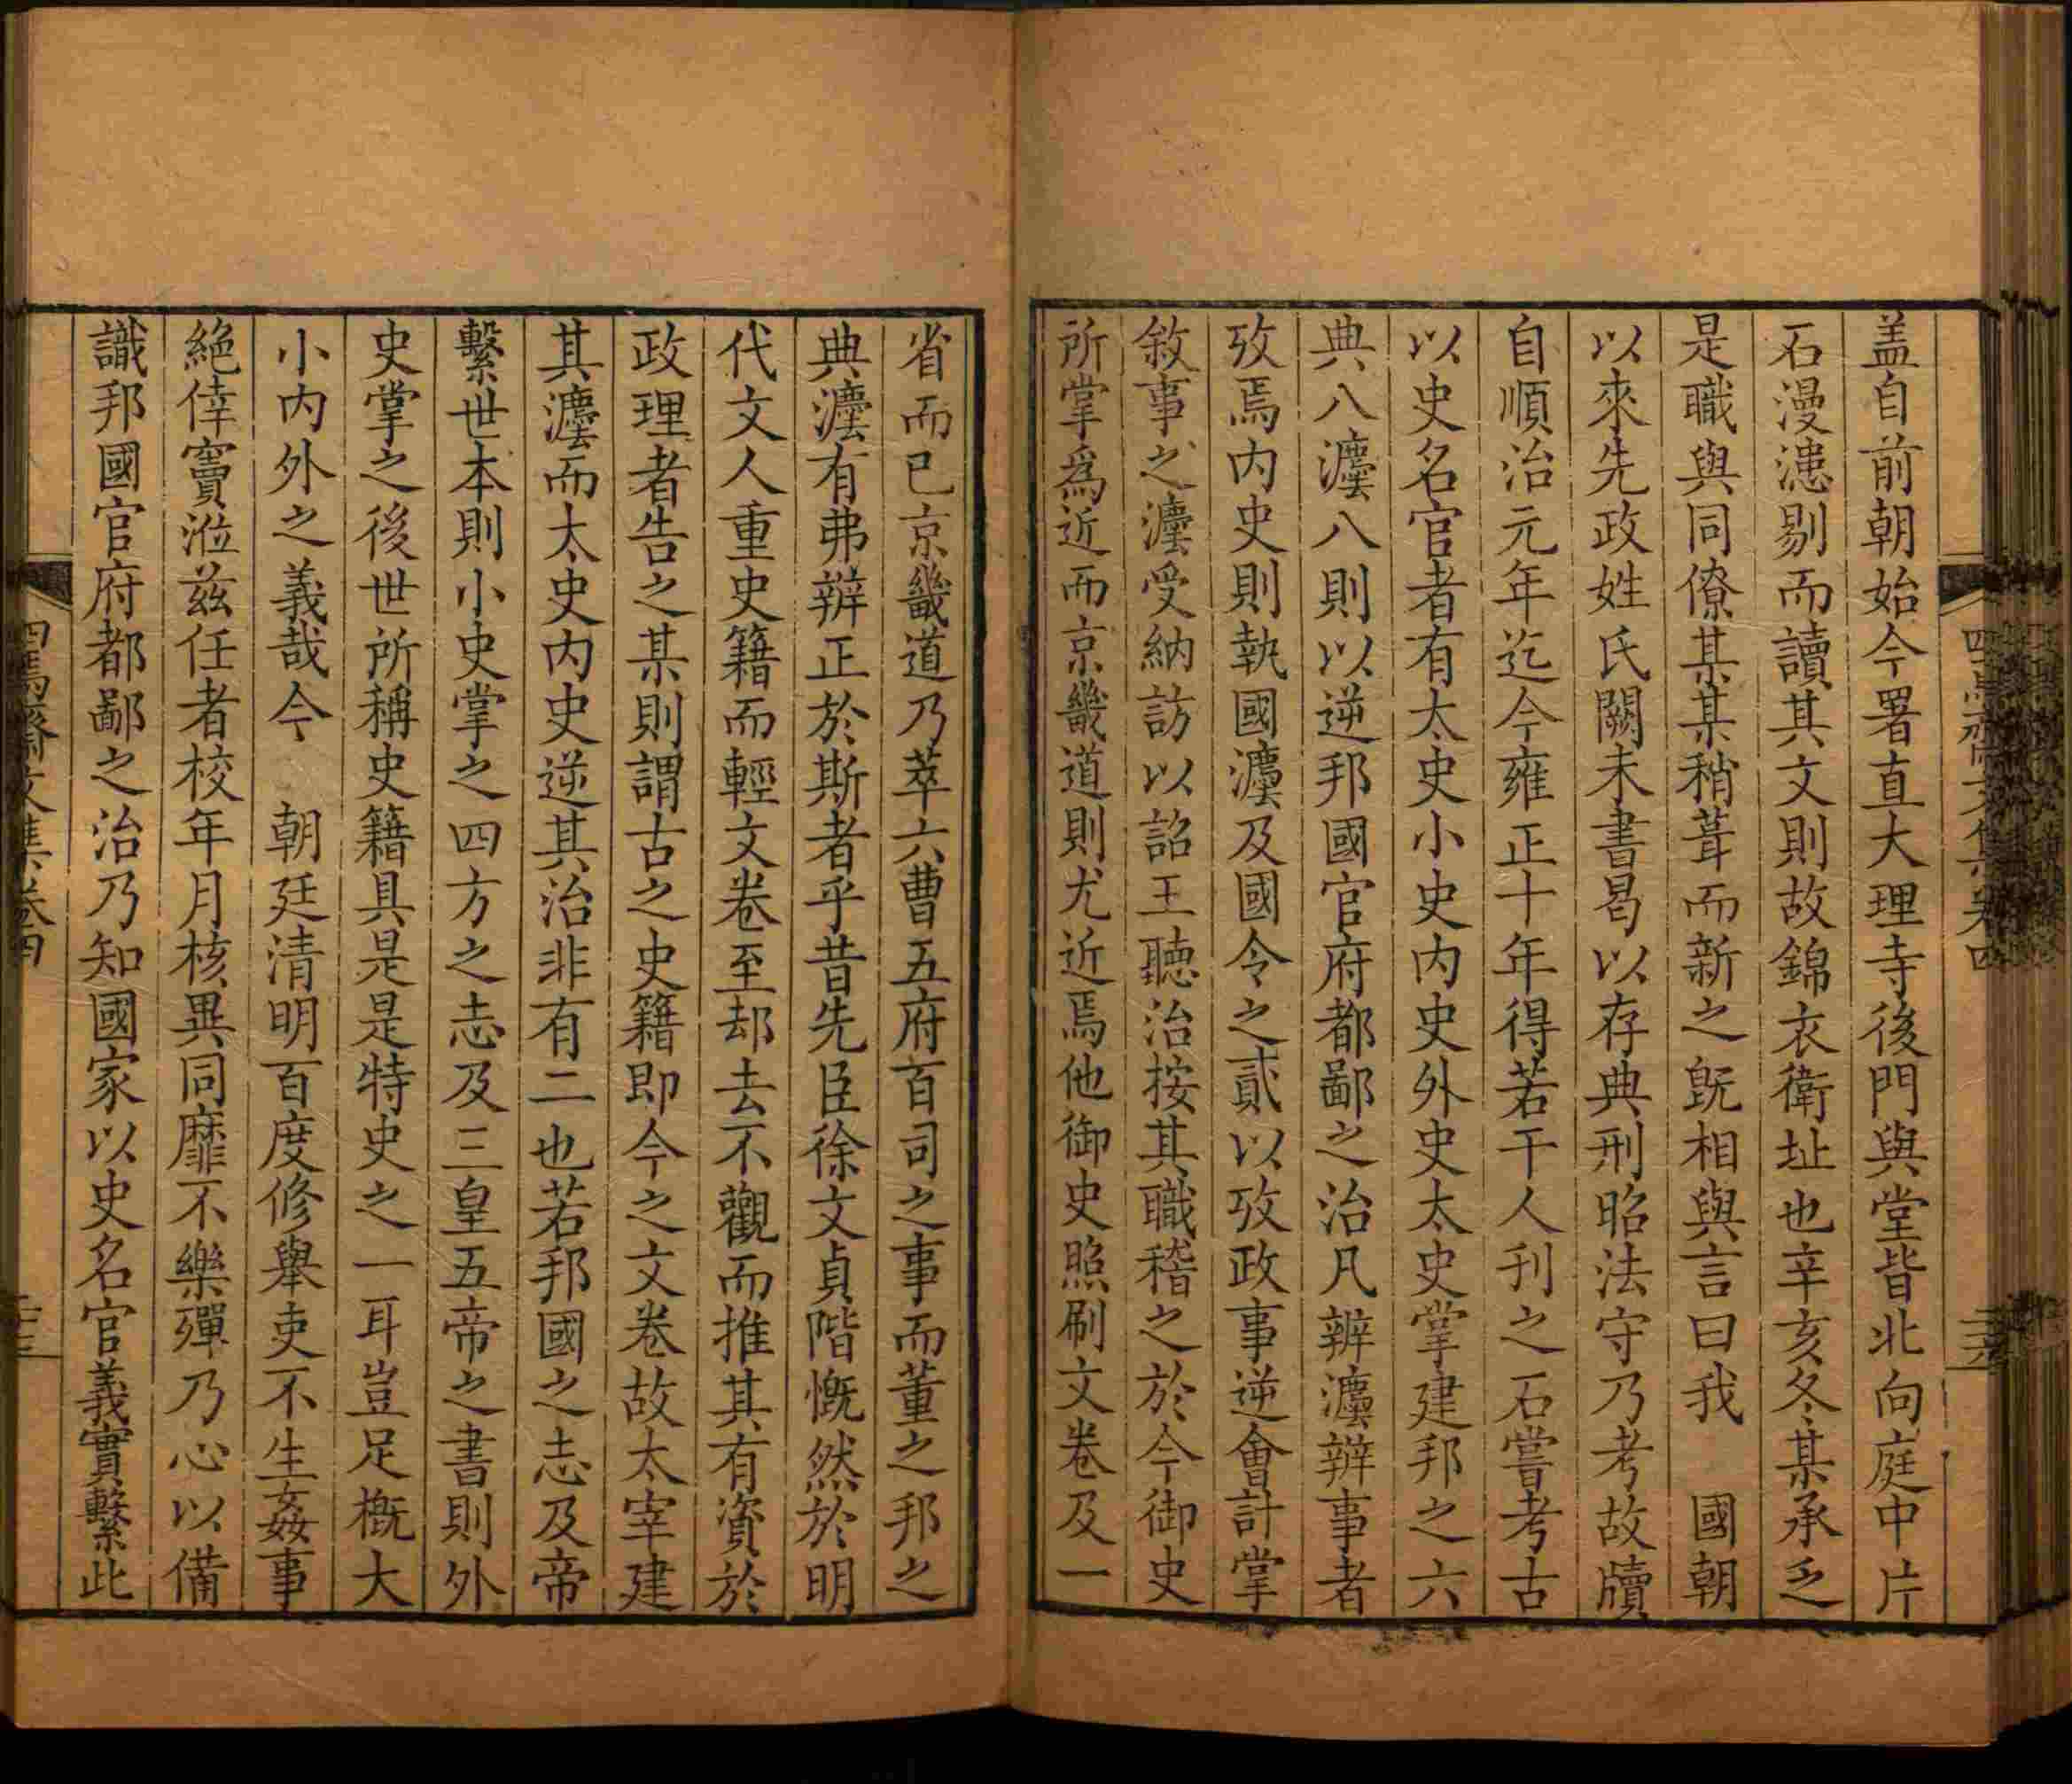 盖自前朝始今署直大理寺後門與堂皆北向庭中片
石漫漶剔而讀其文則故錦衣衛址也辛亥冬某承乏
是職與同僚某某稍葺而新之旣相與言曰我　國朝
以來先政姓氏闕未書曷以存典刑昭法守乃考故牘
自順治元年迄今雍正十年得若干人刊之石嘗考古
以史名官者有太史小史内史外史太史掌建邦之六
典八灋八則以逆邦國官府都鄙之治凡辨灋辨事者
攷焉内史則執國灋及國令之貳以攷政事逆會計掌
敘事之灋受納訪以詔王聽治按其職稽之於今御史
所掌爲近而京畿道則尤近焉他御史照刷文卷及一
省而已京畿道乃萃六曹五府百司之事而董之邦之
典灋有弗辨正於斯者乎昔先臣徐文貞階慨然於明
代文人重史籍而輕文卷至却去不觀而推其有資於
政理者告之某則謂古之史籍即今之文卷故太宰建
其灋而太史内史逆其治非有二也若邦國之志及帝
繫世本則小史掌之四方之志及三皇五帝之書則外
史掌之後世所稱史籍具是是特史之一耳豈足概大
小内外之義哉今　朝廷清明百度修舉吏不生姦事
絕倖竇涖茲任者校年月核異同靡不樂殫乃心以備
識邦國官府都鄙之治乃知國家以史名官義實繫此
四焉齋文集卷四